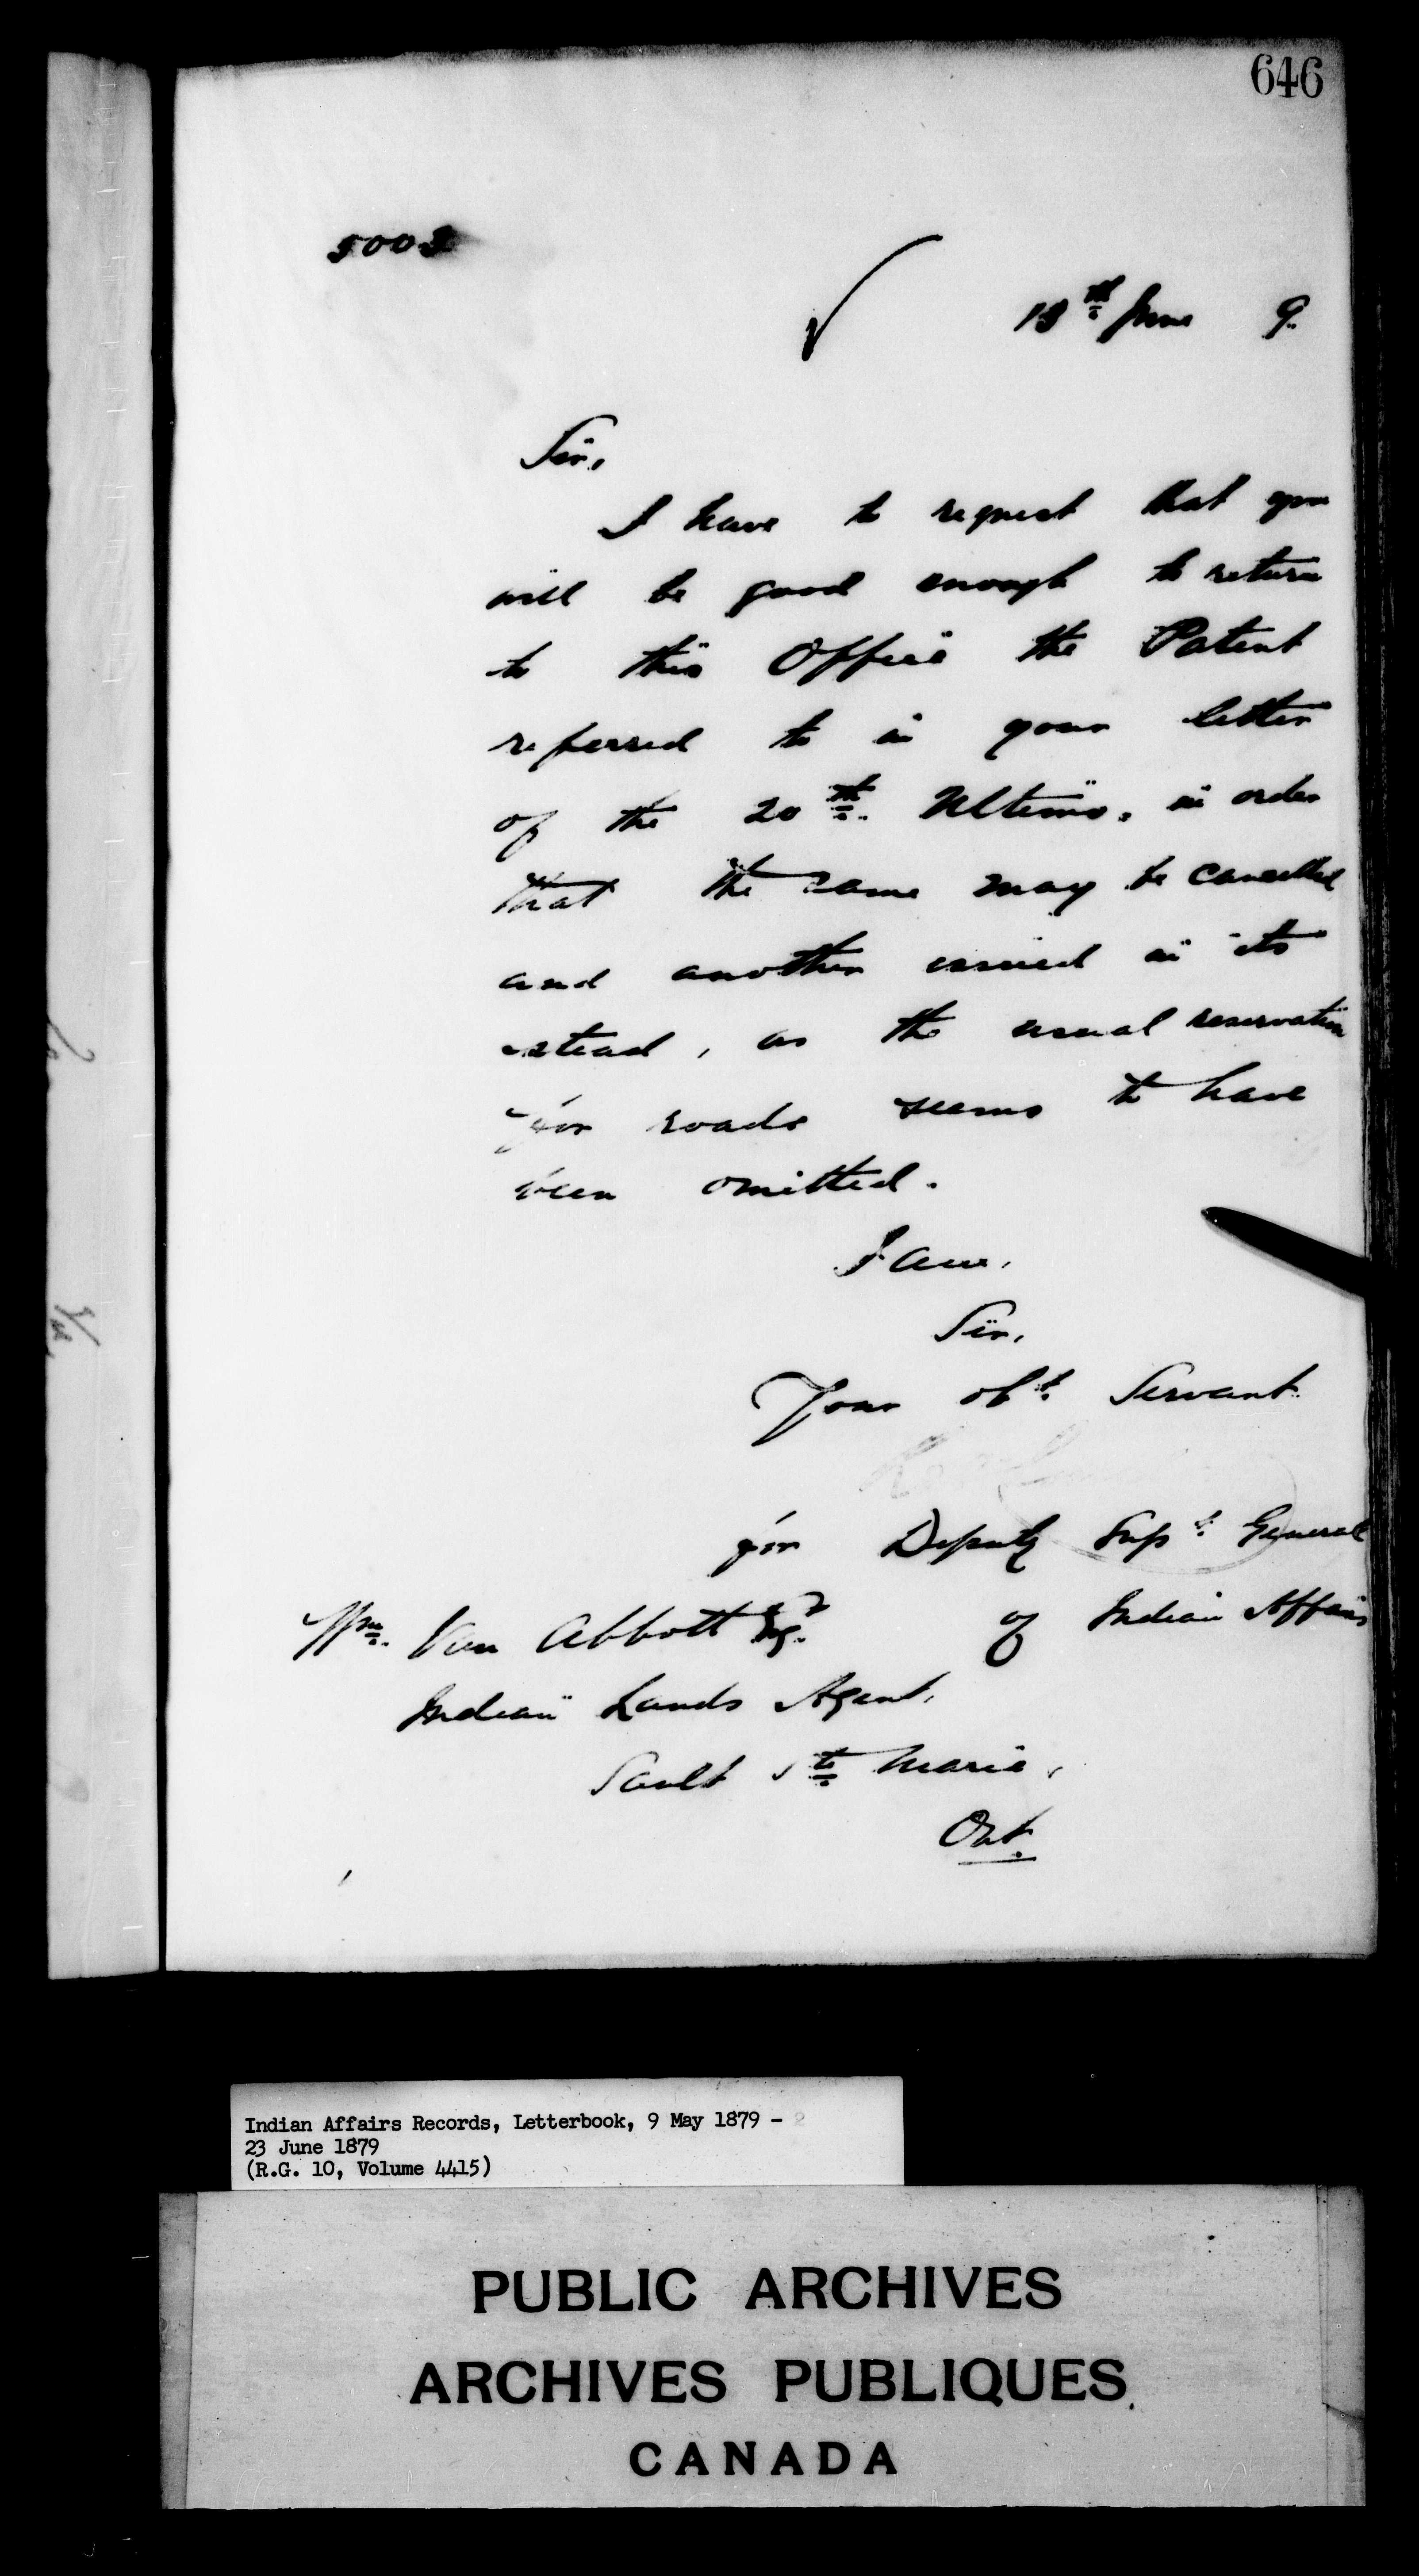 646
5003
18th June 9.
Sir,
I have to request that you
will be good enough to return
to this Office the Patent
referred to in your letter
of the 20th. Ultimo, in order
that the same may be cancelled
and another issued in its
stead, as the usual reservation
for roads seems to have
been omitted.
I am,
Sir,
Your obt. Servant
for Deputy Supt. General
of Indian Affairs
Wm. Van Abbott Esqr.
Indian Lands Agent,
Sault Ste Marie,
Ont.
Indian Affairs Records, Letterbook, 9 May 1879 -
23 June 1879
(R.G. 10, Volume 4415)
PUBLIC ARCHIVES
ARCHIVES PUBLIQUES
CANADA